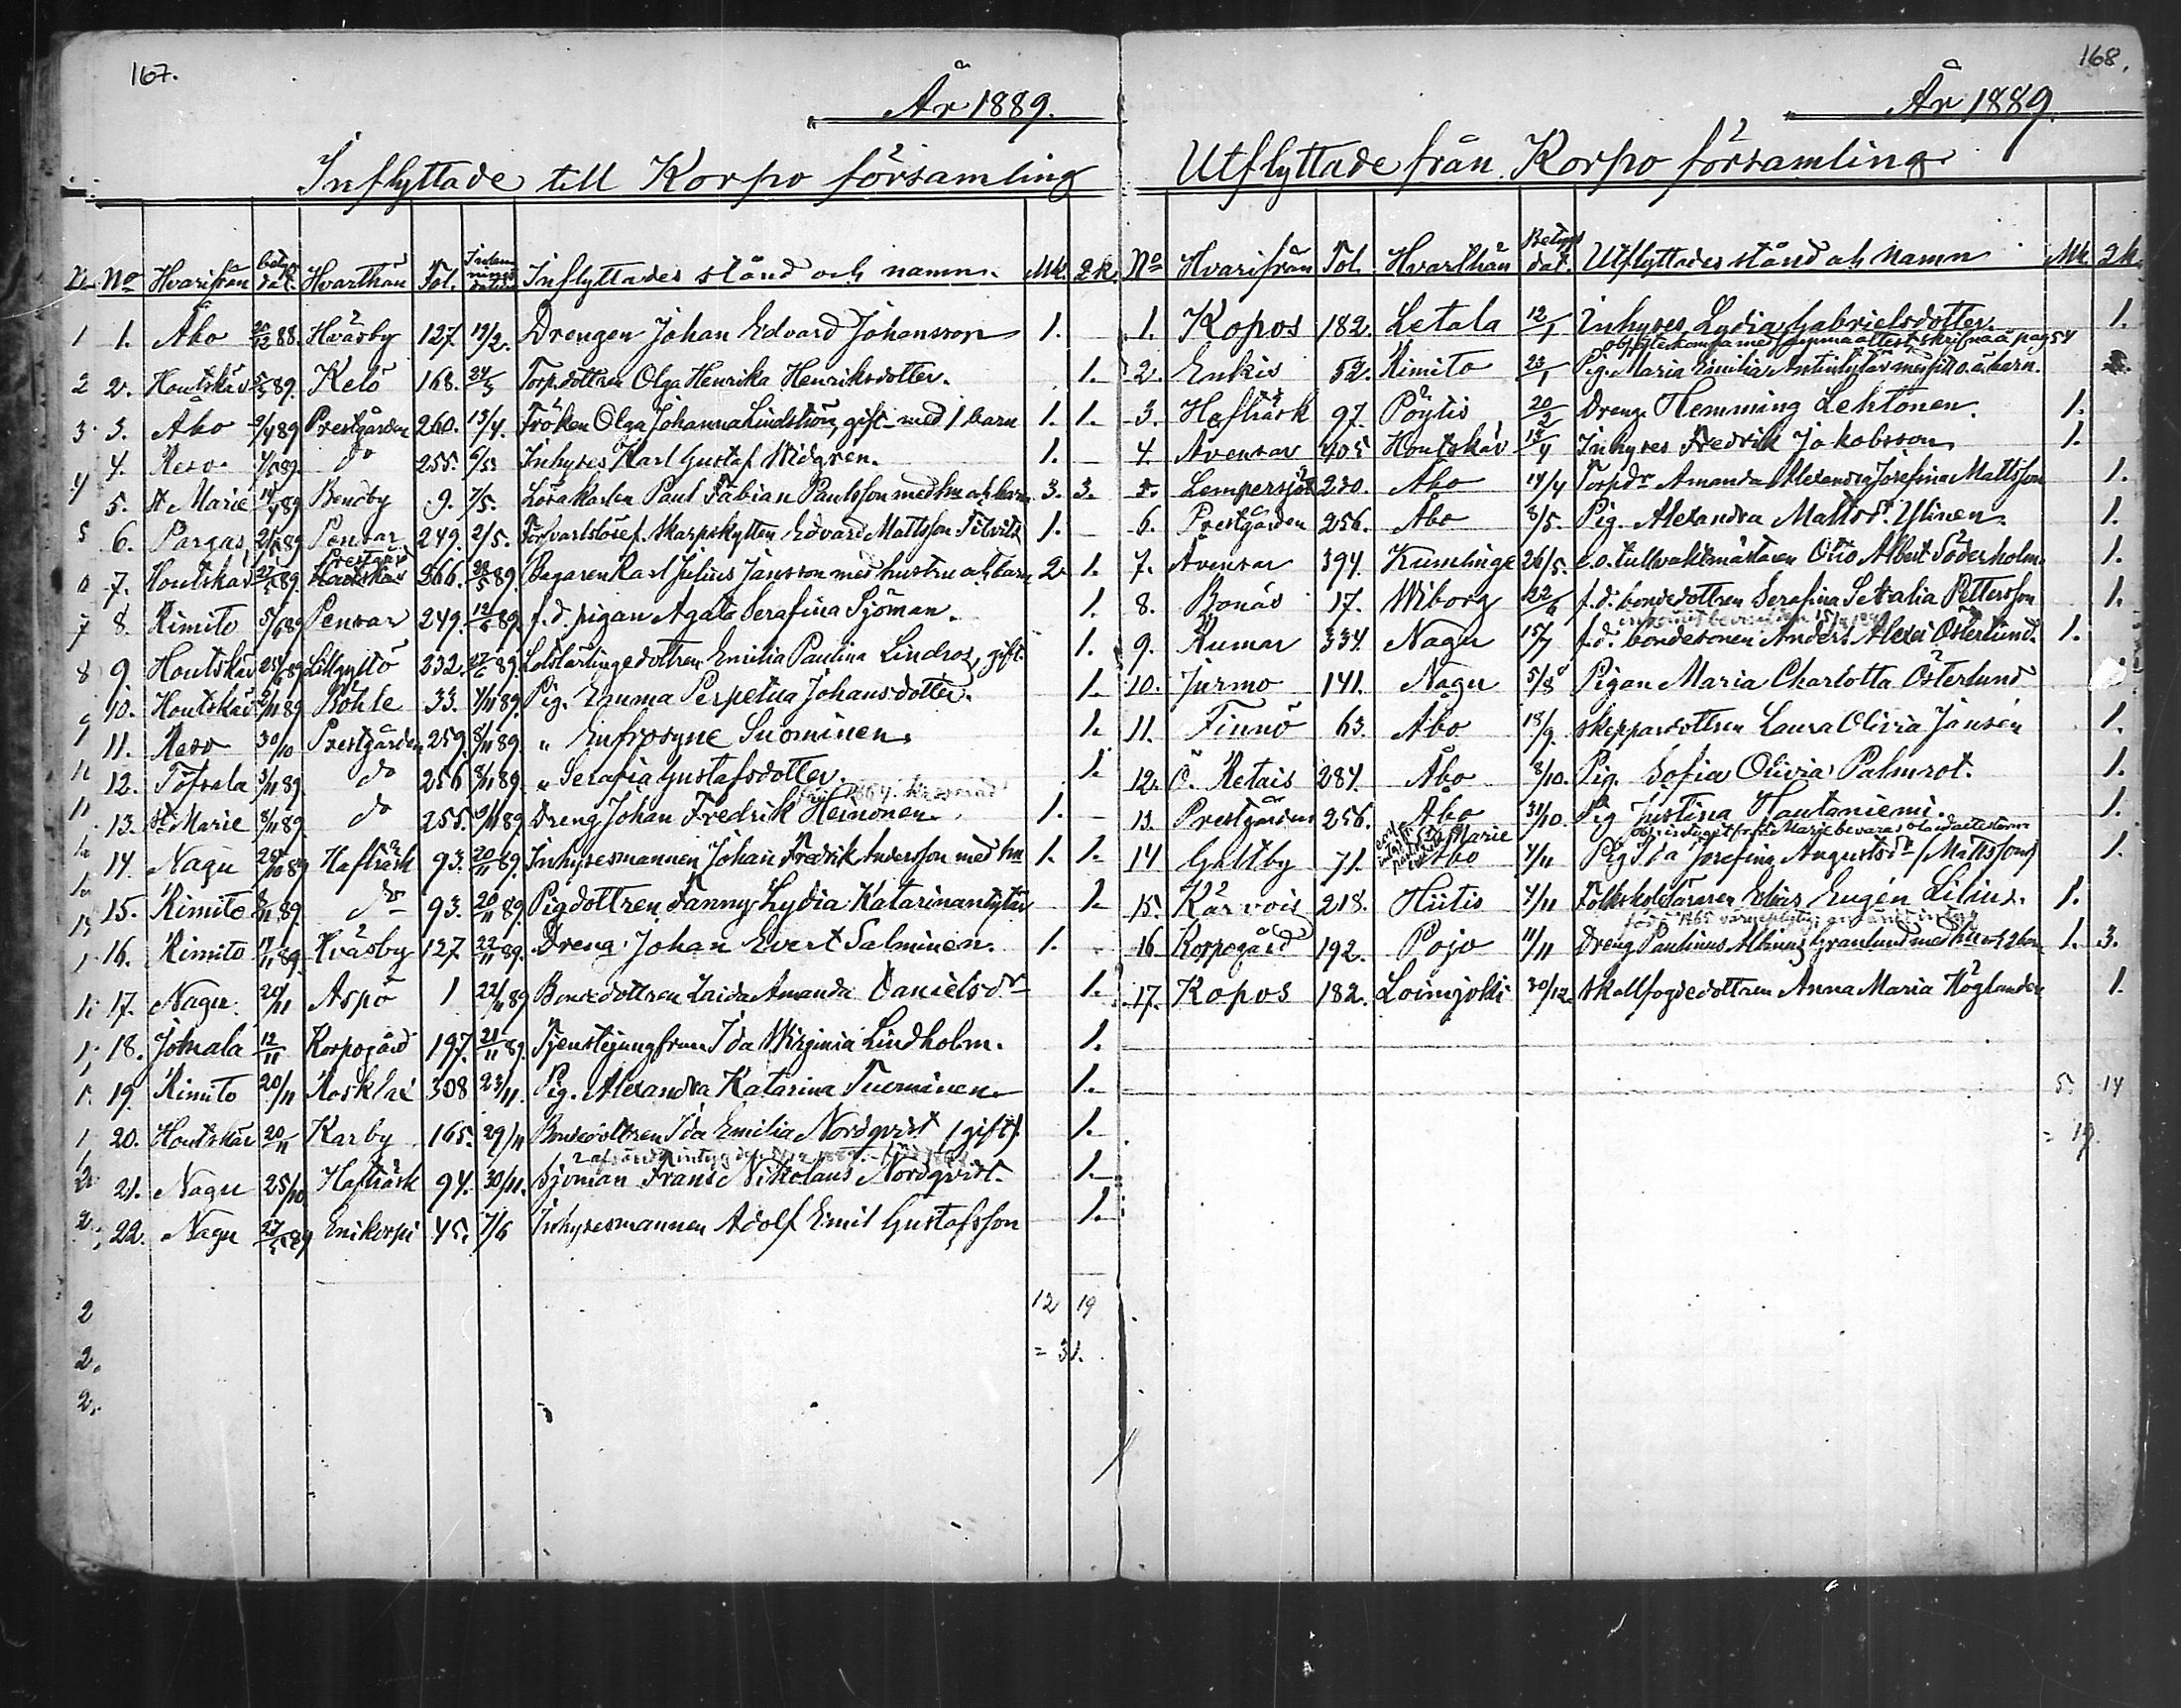 167.
År 1889.
Inflyttade till Korpo församling
No Hvarifrån betyg dat. Hvarthän Fol. Inflyttades stånd och namn. Mk. Qk.
1 1. Åbo 20/12 88. Hväsby 127 19/2. Drengen Johan Edvard Johansson 1.
2 2. Houtskär 5/3 89. Kelö 168. 24/3 Torpdottren Olga Henrika Henriksdotter. 1.
3. 3. Åbo 9/4 89 Prestgården 260. 13/4. Fröken Olga Johanna Lindström, gift med 1 barn 1. 1.
4. Reso 4/5 89. do 255. Inhyses Karl Gustaf Widgren. 1.
4 5. St Marie 14/4 89 Benäby 9. 7/5. Lösakarlen Paul Fabian Paulsson med hu och barn 3. 3.
5 6. Pargas 89 Pensar 249. 2/5. Skarpskytten Edvard Mattsson 1.
7. Houtskär 27/5 89. Prestgård Houtskär 266. 28/5 89. Bagaren Karl Julius Jansson med hustru och barn 2. 1.
7 8. Kimito 5/6 89 Pensar 249. 12/6 89. f.d. pigan Agata Serafina Sjöman. 1.
8 9 Houtskär 89 Lillgyltö 332. 27/6 89. Lotslärlingedottren Emilia Paulina Lindros, gift. 1.
9 10. Houtskär 2/11 89 Böhle 33. 4/11 89. Pig. Emma Perpetua Johansdotter. 1.
11. Reso 30/10 Prestgården 259. 8/11 89. " Eufrosyne Suominen. 1.
12. Töfsala 3/11 89 do 256 8/11 89. " Serafia Gustafsdotter. 1.
13. St Marie 8/11 89 do 255. 9/11 89 Dreng Johan Fredrik Heinonen. 1.
14. Nagu 28/10 89 Hafträsk 93. 20/11 89. Inhysesmannen Johan Fredrik Andersson med hu 1. 1.
15. Kimito 8/11 89. do 93. 20/11 89. Pigdottren Fanny Lydia Katarina 1.
16. Kimito 14/11 89. Hväsby 127. 22/11 89. Dreng Johan Evert Salminen. 1.
17. Nagu. 20/11 Aspö 1 22/11 89 Bondedottren Zaida Amanda Danielsdr 1.
18. Jomala 12/11 Korpogård 197. 21/11 89. Tjenstejungfrun Ida Wirginia Lindholm. 1.
19. Kimito 20/11 Rosklax 308 23/11. Pig. Alexandra Katarina Tuominen. 1.
20. Houtskär 20/11 Karby 165. 29/11 Bondedottren Ida Emilia Nordqvist (gift). 1.
21. Nagu 25/10 Hafträsk 94. 30/11. Sjöman Frans Nikolaus Nordqvist. 1.
22. Nagu 27/5 89 Enikorpi 45. 7/6 Inhysesmannen Adolf Emil Gustafsson 1.
12 19
= 31.
168.
År 1889.
Utflyttade från Korpo församling
No Hvarifrån Fol. Hvarthän Betygs dat. Utflyttades stånd och namn Mk. Qk.
1. Kopos 182. Letala 12/1 Inhyses Lydia Gabrielsdotter. 1.
2. Enkis 52. Kimito 23/1 Pig. Maria Emilia
3. Hafträsk 97. Pöytis 20/2 Dreng Hemming Lehtonen. 1.
4. Avensar 405 Houtskär 13/4 Inhyses Fredrik Jakobsson 1.
5. Lempersjö 230. Åbo 14/4 Torpdr Amanda Alexandra Josefina Mattsson 1.
6. Prestgården 256. Åbo 8/5. Pig. Alexandra Mattsdr Ylinen. 1.
7. Avensar 394. Kumlinge 26/5. e.o. tullvaktmästaren Otto Albert Söderholm 1.
8. Bonäs 17. Wiborg 22/6 f.d. bondedottren Serafina Pettersson 1.
9. Rumar 334. Nagu 15/7 f.d. bondesonen Anders Alexei Österlund. 1.
10. Jurmo 141. Nagu 5/8 Pigan Maria Charlotta Österlund
11. Finnö 63. Åbo 18/9. Skeppardottren Laura Olivia Jansén 1.
12. Ö. Retais 284. Åbo 8/10. Pig. Sofia Olivia Palmrot. 1.
13. Prestgården 256. Åbo 31/10. Pig Justina Hautaniemi. 1.
14 Galtby 71. St Marie Åbo 4/11 Pig Ida Josefina Augustsdr (Mattsson) 1.
15. Kärvois 218. Hiitis 7/11 Folkskoleläraren Elias Eugén Lilius. 1.
16 Korpogård 192. Pojo 11/11 Dreng Paulinus Albinus Granlund med hu och 2 barn 1. 3.
17. Kopos 182. Loimjoki 30/12. Skallfogdedottren Anna Maria Höglander 1.
5. 14
= 19.